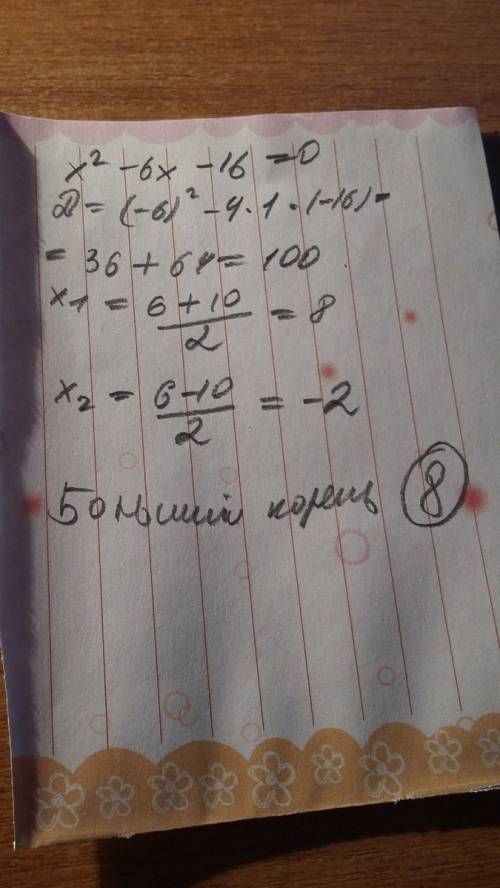 x² - 6x - 16 = 0
D = (-6)² - 4 · 1 · (-16) =
= 36 + 64 = 100
x₁ = (6 + 10)/2 = 8
x₂ = (6 - 10)/2 = -2
Больший корень 8